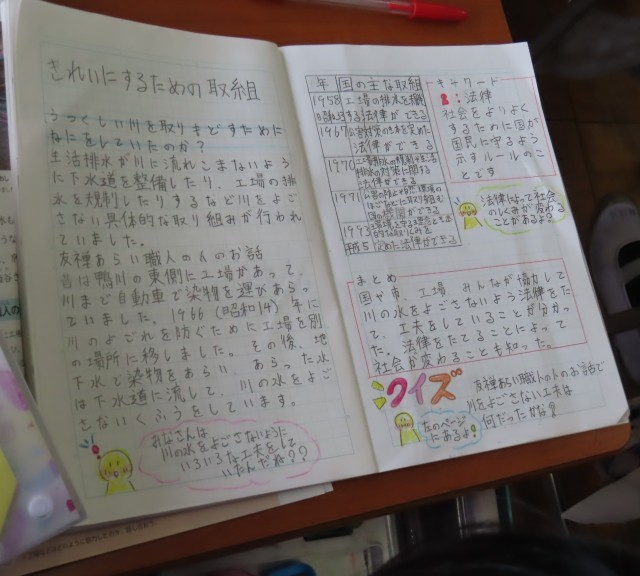 きれいにするための取組
うつくしい川を取りもどすために
なにをしていたのか?
生活排水が川に流れこまないよう
に下水道を整備したり、工場の排
水を規制したりするなど川をよご
さない具体的な取り組みが行われ
ていました。
友禅あらい職人の人のお話
昔は鴨川の東側に工場があって、
川まで自動車で染物を運びあらっ
ていました。1966(昭和 年に
川のよごれを防ぐために工場を別
の場所に移しました。その後、地
下水で染物をあらい、あらった水
は下水道に流して、川の水をよご
さないくふうをしています。
みなさんは
川の水をよごさないように
いろいろな工夫をして
いたんだね??
年 国の主な取組
1958 工場の排水を
する法律ができる
1967
法律ができる
1970
の対策に関する
法律ができる
1971
ごとに取り組む
国の ができる
1993
平成5 定めた法律ができる
キーワード
:法律
社会をよりよく
するために国が
国民に守るよう
示すルールのこ
とです
法律によって社会
のしくみが変わる
ことがあるよ!
まとめ
国や市、工場 みんなが協力して
川の水をよごさないよう法律をた
て、工夫をしていることが分かっ
た。法律をたてることによって
社会が変わることも知った。
クイズ
友禅あらい職人の人のお話で
川をよごさない工夫は
何だったかな
左のページ
にあるよ!